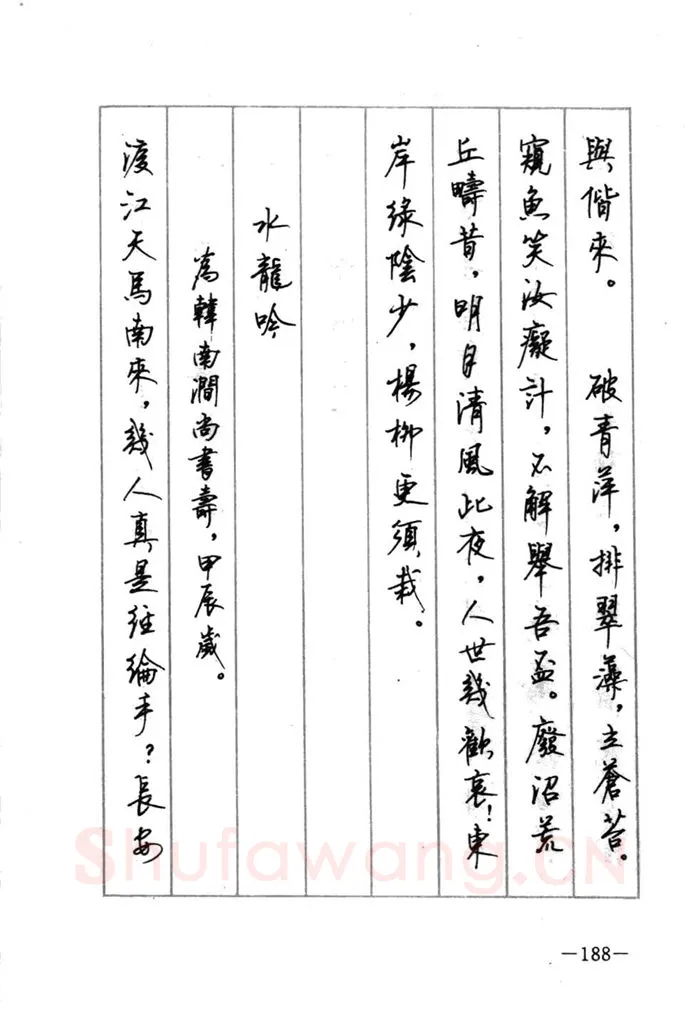 與偕來。　破青萍，排翠藻，立蒼苔。
窺魚笑汝癡計，不解舉吾盃。廢沼荒
丘疇昔，明月清風此夜，人世幾歡哀！東
岸綠陰少，楊柳更須栽。
水龍吟
為韓南澗尚書壽，甲辰歲。
渡江天馬南來，幾人真是經綸手？長安
Shufawang.CN
—188—